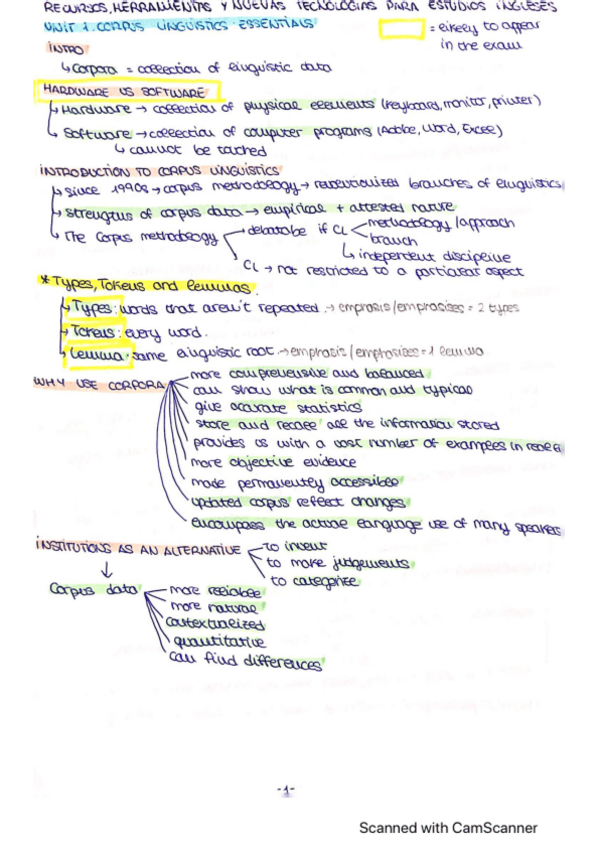 RECURSOS, HERRAMIENTAS Y NUEVAS TECNOLOGÍAS PARA ESTUDIOS INGLESES
UNIT 1. CORPUS LINGUISTICS ESSENTIALS
= likely to appear
in the exam
INTRO
↳ Corpora = collection of linguistic data
HARDWARE VS SOFTWARE
↳ Hardware → collection of physical elements (Keyboard, monitor, printer)
↳ Software → collection of computer programs (Adobe, Word, Excel)
↳ cannot be touched
INTRODUCTION TO CORPUS LINGUISTICS
↳ Since 1990s → corpus methodology → revolutionized branches of linguistics
↳ Strengths of corpus data → empirical + attested nature
↳ The corpus methodology
debatable if CL
methodology / approach
branch
↳ independent discipline
CL → not restricted to a particular aspect
* Types, Tokens and lemmas.
↳ Types: words that aren't repeated. → emphasis/emphasises = 2 types
↳ Tokens: every word.
↳ Lemma: same linguistic root. → emphasis/emphasizes = 1 lemma
WHY USE CORPORA
more comprehensive and balanced
can show what is common and typical
give accurate statistics
store and recall all the information stored
provides us with a vast number of examples in
more objective evidence
made permanently accessible
updated corpus reflect changes
encompass the actual language use of many speakers
INSTITUTIONS AS AN ALTERNATIVE
to invent
to make judgements
to categorize
↓
Corpus data
more reliable
more natural
contextualized
quantitative
can find differences
-1-
Scanned with CamScanner